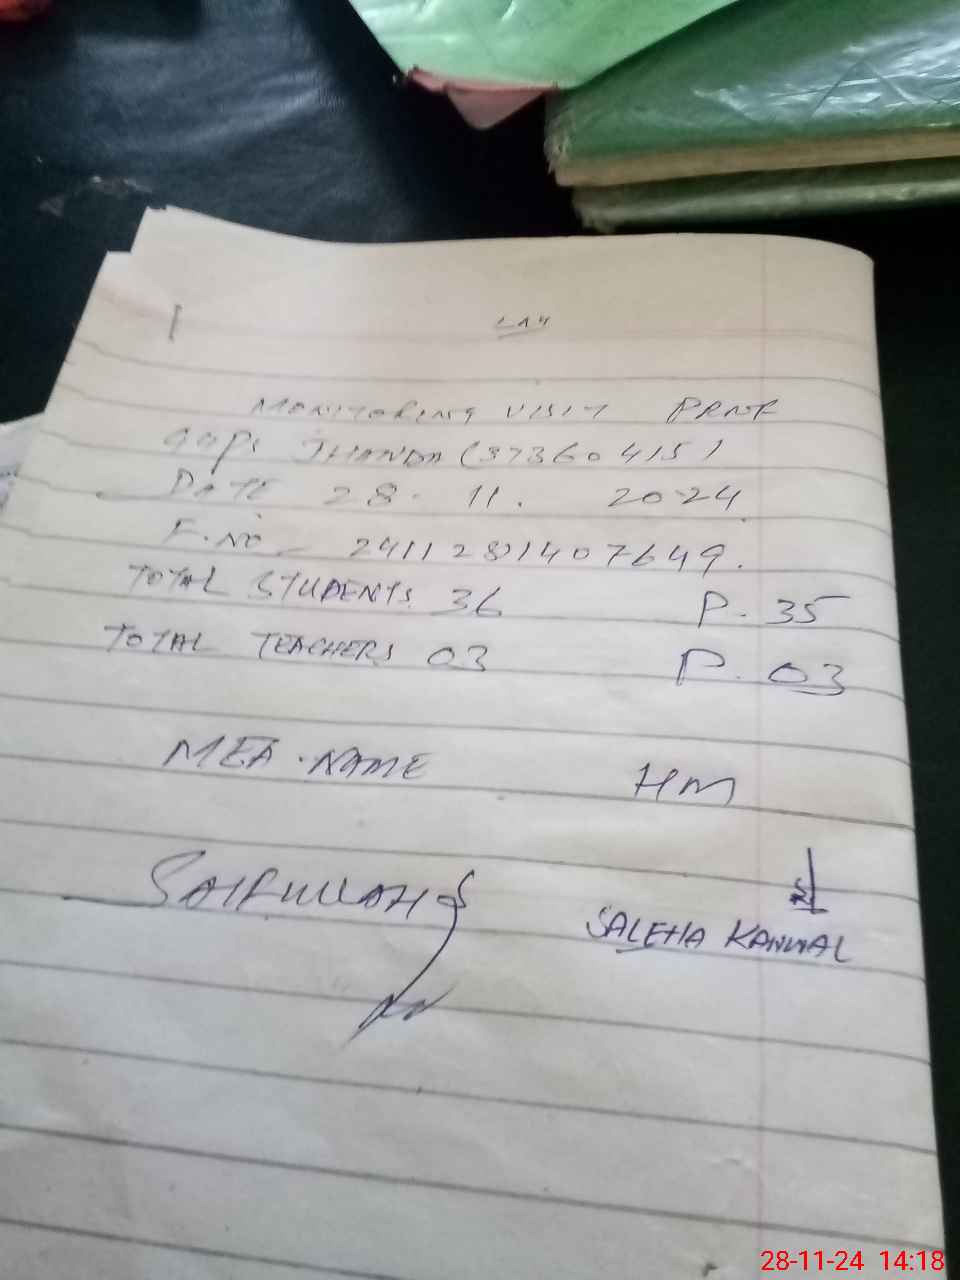 MONITORING VISIT PROF
GGPS JHANDA (37360415)
DATE 28. 11. 2024
F.NO 2411281407649.
TOTAL STUDENTS 36 P. 35
TOTAL TEACHERS 03 P. 03
MEA. NAME HM
SAIFULLAH
SALEHA KANWAL
28-11-24 14:18